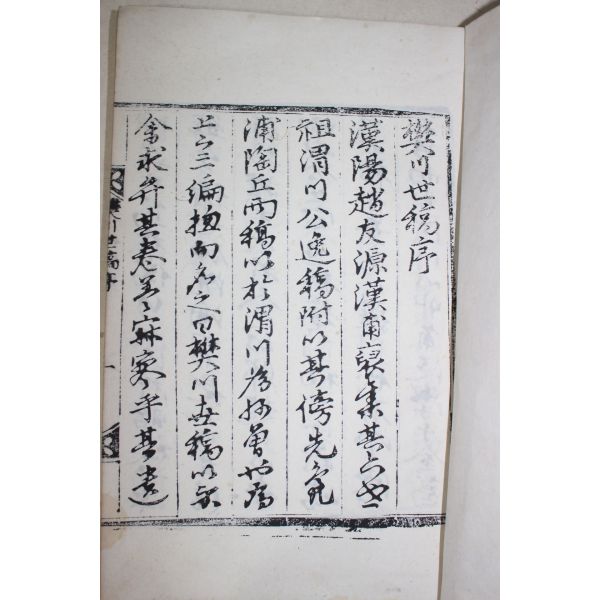 樊川世稿序
漢陽趙友源漢甫裒集其六世
祖渭川公逸稿附以其傍先
浦陶丘兩稿以於渭川為曾也為
上下三編摠而名之曰樊川世稿以
余求弁其卷首寂寥乎其書
樊川世稿序
一